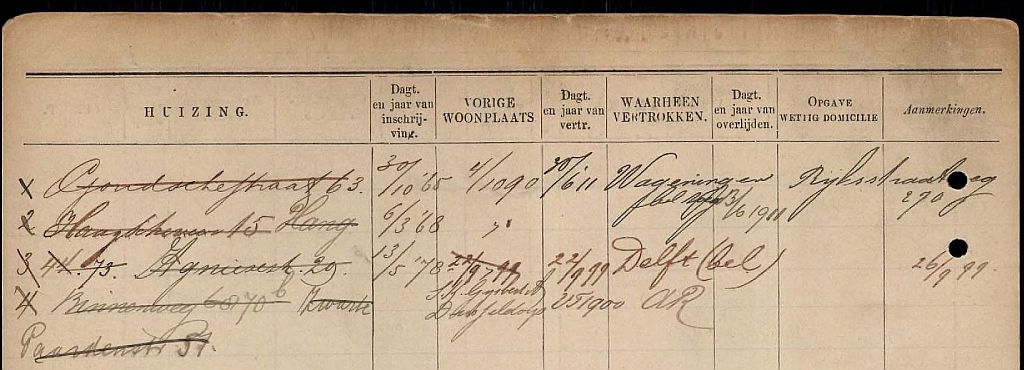 HUIZING. Dagt. en jaar van inschrijving. VORIGE WOONPLAATS. Dagt. en jaar van vertr. WAARHEEN VERTROKKEN. Dagt. en jaar van overlijden. OPGAVE WETTIG DOMICILIE Aanmerkingen.
x Goudschestraat 63. 30/10 '65 4/1090 30/6 11 Wageningen Rijksstraatweg
bel 13/6 1911 290
2 15 Hang 6/3 '68 "
3 44. 73. Agniesestr. 29. 13/5 '78 22/9 99 22/9 99 Delft (bel) 26/9 99.
4 Binnenweg 70 b Zwarte 1900 AR
Paardenstr 57.